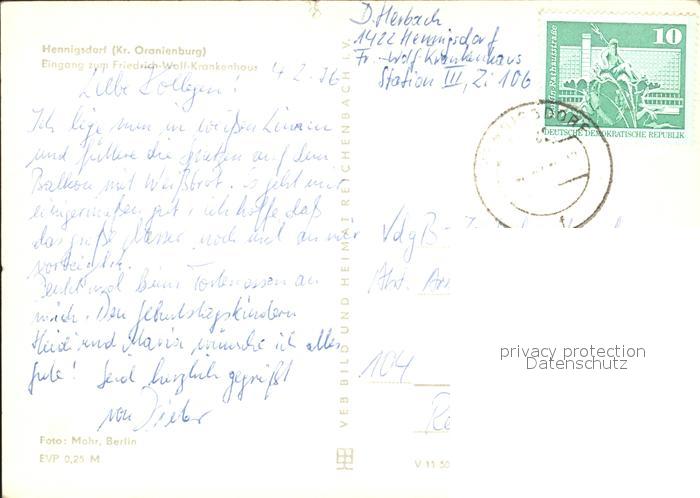 Hennigsdorf (Kr. Oranienburg)
Eingang zum Friedrich-Wolf-Krankenhaus
4.2.76
Liebe Kollegen!
Ich liege nun in weißen Linnen
und füttere die Spatzen auf dem
Balkon mit Weißbrot. Es geht mir
einigermaßen gut, ich hoffe daß
das große Messer noch mal an mir
vorbeigeht.
Denkt mal beim Tortenessen an
mich. Den Geburtstagskindern
Heidi und Maria wünsche ich alles
Gute! Seid herzlich gegrüßt
von Dieter
Foto: Mohr, Berlin
EVP 0,25 M
VEB BILD UND HEIMAT REICHENBACH I. V.
V 11 50
D. Herbach
1422 Hennigsdorf
Fr. Wolf Krankenhaus
Station III, Zi 106
10
DEUTSCHE DEMOKRATISCHE REPUBLIK
VdgB
Abt.
104
privacy protection
Datenschutz